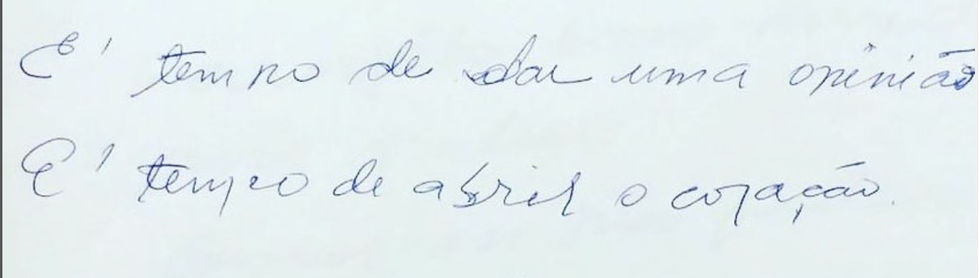 É tempo de dar uma opinião
É tempo de abrir o coração.